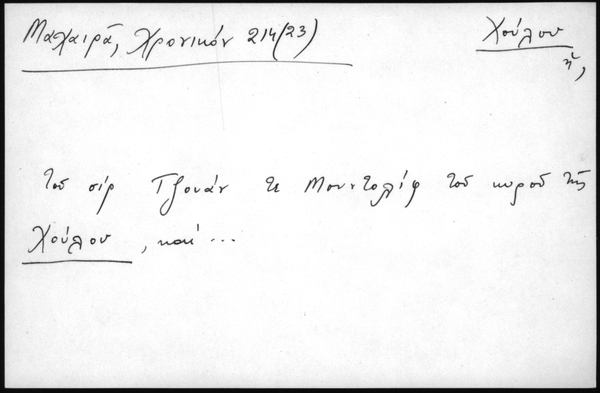 Μαχαιρᾶ, Χρονικόν 214(23)
Χούλου
ἡ,
τοῦ σίρ Τζουάν τε Μουντολίφ τοῦ κυροῦ τῆς
Χούλου, καί ...